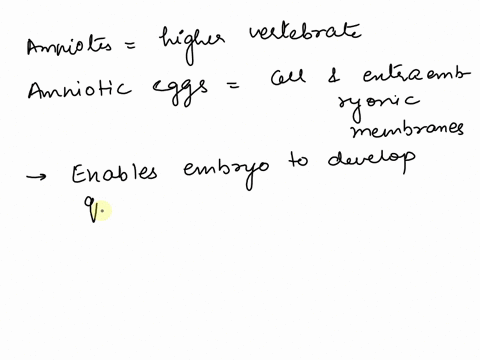 Amniotes = higher vertebrate
Amniotic eggs = Cell & extraemb
ryonic
membranes
→ Enables embryo to develop